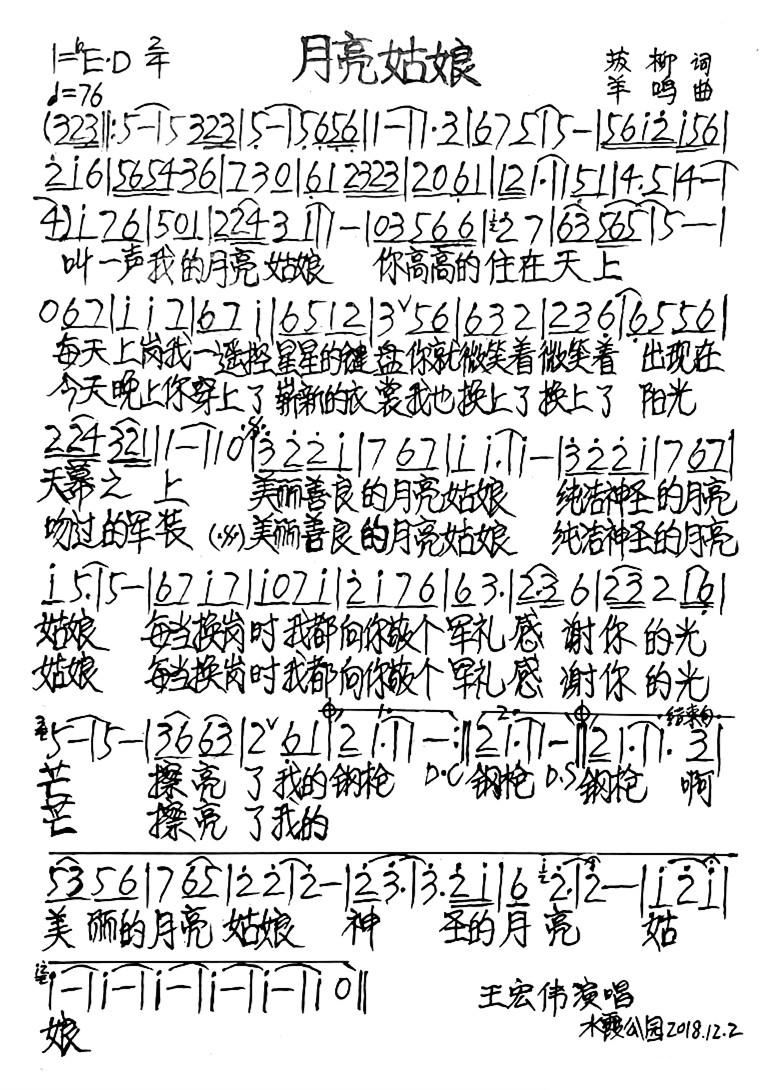 月亮姑娘
1=♭E·D 2/4
拔柳 词
♩=76
羊鸣 曲
(323‖:5-|5 323|5-|5656|1-|1·3|675|5-|561̇2̇ 1̇56|
2̇1̇6|565436|730|61 2323|2061|121·|151|4·5|4-|
4)1̇76|501|2243 1|1-|03566|2̇7|63565|5-|
叫一声我的月亮姑娘 你高高的住在天上
067|1̇1̇7|671̇|6512|3ˇ56|632|236|6556|
每天上岗我一遥控星星的键盘你就微笑着微笑着 出现在
今天晚上你穿上了崭新的衣裳我也换上了换上了 阳光
224321|1-|10|3̇2̇2̇1̇|767|1̇1̇·|1̇-|3̇2̇2̇1̇|767|
天幕之上 美丽善良的月亮姑娘 纯洁神圣的月亮
吻过的军装 美丽善良的月亮姑娘 纯洁神圣的月亮
1̇5·|5-|671̇7|1̇071̇|2̇1̇76|63·|2·36|23216|
姑娘 每当换岗时我都向你敬个军礼感谢你的光
姑娘 每当换岗时我都向你敬个军礼感谢你的光
1. 2. 结束句
5-|5-|3663|2ˇ61|21·|1-:‖21·|1-‖21·|1·3|
芒 擦亮了我的钢枪 D.C 钢枪 D.S 钢枪 啊
芒 擦亮了我的
5356|765|2̇2̇|2̇-|2̇3̇·|3̇·2̇1̇|6 2̇·|2̇-|1̇2̇1̇|
美丽的月亮姑娘 神圣的月亮 姑
1̇-|1̇-|1̇-|1̇-|1̇-|1̇0‖
娘
王宏伟演唱
水霞公园2018.12.2